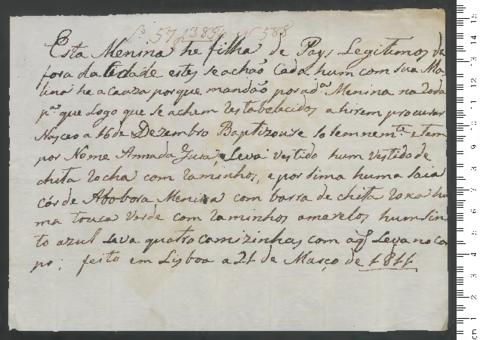 Lº 57, 1385 Nº 588
Esta Menina he filha de Pays Legitimos de
fora da Cidade estes se achão Cada hum com sua Ma
lina he a cauza porque mandão por ad.ª Menina na Roda
p.ª que logo que se achem restabelecidos a hirem procurar
Nasceo a 16 de Dezembro Baptizouse Solemnem.te e tem
por Nome Anna da Leva Vestido hum vestido de
chita Rocha com Raminhos, e por sima huma saia
cór de Abobora Menina com barra de chita Roxa hu
ma touca verde com Raminhos amarelos hum sin
to azul leva quatro camizinhas com a q' Leva no cor
po; feito em Lisboa a 21 de Março de 1811